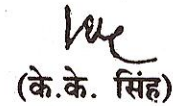 (के.के. सिंह)